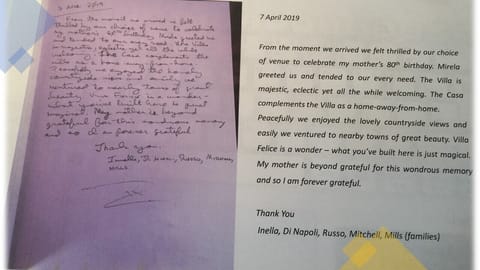 2019
From the moment we arrived we felt
thrilled by our choice of venue to celebrate
my mother's 80th birthday. Mirela greeted us
and tended to our every need. The Villa
is majestic, eclectic yet all the while
welcoming. The Casa complements the
villa as a home away from home.
Peacefully we enjoyed the lovely
countryside views and easily we
ventured to nearby towns of great
beauty. Villa Felice is a wonder -
what you've built here is just
magical. My mother is beyond
grateful for this wondrous memory
and so I am forever grateful
Thank you.
Inella, Di Napoli, Russo, Mitchell,
Mills
7 April 2019
From the moment we arrived we felt thrilled by our choice
of venue to celebrate my mother's 80th birthday. Mirela
greeted us and tended to our every need. The Villa is
majestic, eclectic yet all the while welcoming. The Casa
complements the Villa as a home-away-from-home.
Peacefully we enjoyed the lovely countryside views and
easily we ventured to nearby towns of great beauty. Villa
Felice is a wonder – what you've built here is just magical.
My mother is beyond grateful for this wondrous memory
and so I am forever grateful.
Thank You
Inella, Di Napoli, Russo, Mitchell, Mills (families)